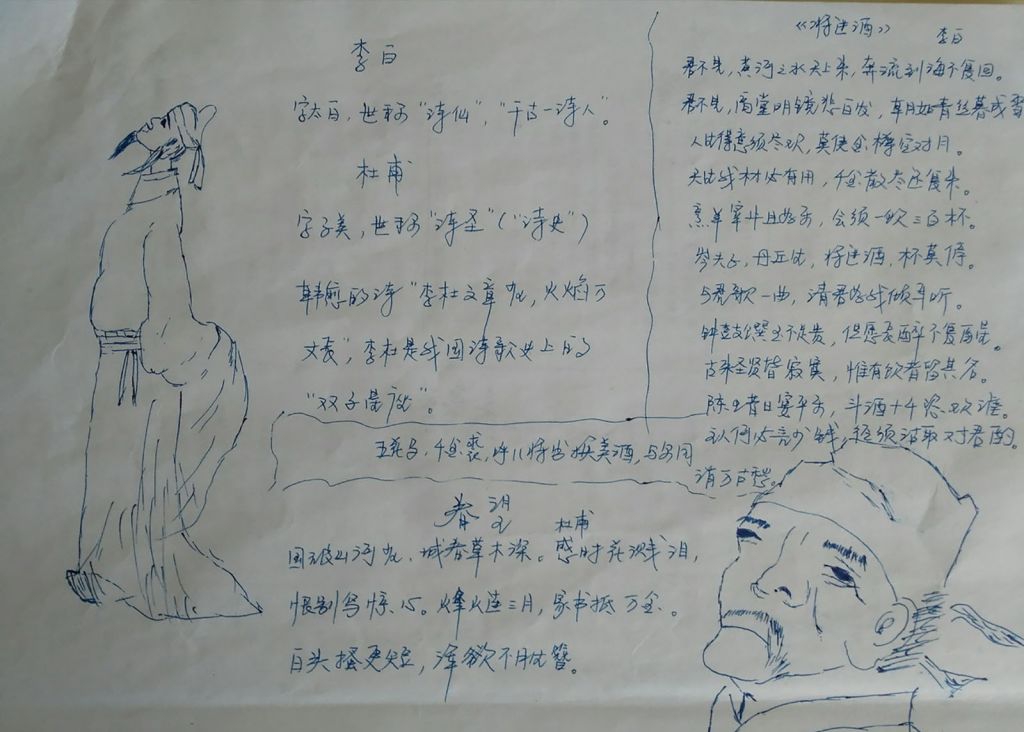 李白
字太白,世称“诗仙”,“千古一诗人”。
杜甫
字子美,世称“诗圣”(“诗史”)
韩愈的诗“李杜文章在,火焰万
丈長”,李杜是我国诗歌史上的
“双子星座”。
《将进酒》
李白
君不见,黄河之水天上来,奔流到海不复回。
君不见,高堂明镜悲白发,朝如青丝暮成雪
人生得意须尽欢,莫使金樽空对月。
天生我材必有用,千金散尽还复来。
烹羊宰牛且为乐,会须一饮三百杯。
岑夫子,丹丘生,将进酒,杯莫停。
与君歌一曲,请君为我倾耳听。
钟鼓馔玉不足贵,但愿长醉不复醒。
古来圣贤皆寂寞,惟有饮者留其名。
陈王昔日宴平乐,斗酒十千恣欢谑。
主人何为言少钱,径须沽取对君酌。
五花马,千金裘,呼儿将出换美酒,与尔同
消万古愁。
春望
杜甫
国破山河在,城春草木深。感时花溅泪,
恨别鸟惊心。烽火连三月,家书抵万金。
白头搔更短,浑欲不胜簪。